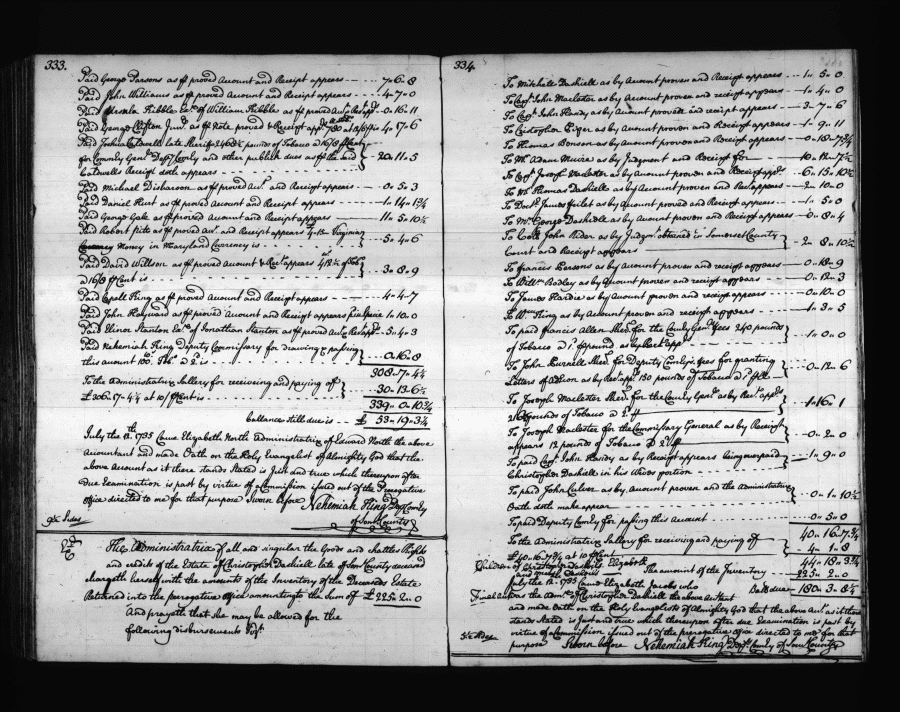 333.
Paid George Parsons as p proved Account and Receipt appears 7..6..8
Paid John Williams as p proved Account and Receipt appears 4..7..0
Paid Ursula Kibble Ex. of William Kibble as p proved Acc. & Rec. app. 0..16..11
Paid George Clifton Jun. as p Note proved & Receipt app. 4..17..6
Paid Joshua Caldwell late Sheriff 2468½ pounds of Tobacco a 16/8 p Cent
for Comonly Gen. Dep. Comly and other publick dues as p the said 20..11..5
Caldwells Receipt doth appears
Paid Michael Disharoon as p proved Acc. and Receipt appears 0..5..3
Paid Daniel Hust as p proved Account and Receipt appears 1..14..1¾
Paid George Gale as p proved Account and Receipt appears 11..5..10½
Paid Robert pitts as p proved Acc. and Receipt appears Virginia
Money in Maryland Currency is 5..4..6
Paid David Willson as p proved Account & Rec. appears 412½ of Tob.
a 16/8 p Cent is 3..8..9
Paid Capell King as p proved Account and Receipt appears 4..4..7
Paid John Haward as p proved Account and Receipt appears 1..10..0
Paid Elinor Stanton Ex. of Jonathan Stanton as p proved Acc. & Rec. app. 5..4..3
Paid Nehemiah King Deputy Commissary for drawing & passing
this amount 100. Tob. a 2. is 0..16..8
308..7..4½
To the Administratrix Sallery for receiving and paying off
£306..17..4½ at 10 p Cent is 30..13..6½
339..0..10¾
ballance still due is £ 53..19..3¼
July the 12th 1735 Came Elizabeth North administratrix of Edward North the above
Accountant and made Oath on the Holy Evangelist of Almighty God that the
above Account as it there stands Stated is Just and true which thereupon after
due Examination is past by virtue of Commission issued out of the Prerogative
office directed to me for that purpose Sworn before Nehemiah King Dep. Comly
of Som. County
9 Sides
The Administratrix of all and singular the Goods and chattles Rights
and credits of the Estate of Christopher Dashiell late of Som. County deceased
chargeth herself with the amounts of the Inventory of the Deceaseds Estate
Returned into the prerogative office amounting to the Sum of £225..2..0
And prayeth that she may be allowed for the
following disbursements Viz.
334.
To Mitchell Dashiell as by Account proven and Receipt appears 1..5..0
To Cap. John Maclester as by Account proven and receipt appears 1..4..0
To Cap. John Handy as by Account proved and receipt appears 3..7..6
To Cristopher Piper as by Account proven and Receipt appears 1..9..11
To Thomas Benson as by Account proven and Receipt appears 0..18..7¾
To Mr. Adam Muire as by Judgment and Receipt for 10..12..7½
To Cap. Joseph Maclester as by Account proven and Receipt app. 6..15..10½
To Mr. Thomas Dashiell as by Account proven and Rec. appears 2..10..0
To Doct. James Gilet as by Account proven and Receipt appears 1..5..0
To Mr. George Dashiell as by Account proven and Receipt appears 0..8..4
To Coll. John Rider as by Judgm. obtained in Somerset County
Court and Receipt appears 2..8..10½
To francis Persons as by Account proven and receipt appears 0..18..9
To Will. Badley as by Account proven and receipt appears 0..12..3
To James Hardie as by Account proven and receipt appears 0..10..0
To Wm. King as by Account proven and receipt appears 1..3..5
To paid francis Allen Sher. for the Comly Gen. fees 240 pounds
of Tobacco a 1d. p pound, as by Rec. app. 1..0..0
To John Purnell Sher. for Deputy Comlys fees for granting
Letters of Adtion as by Rec. app. 150 pounds of Tobacco a 1d. p 0..12..6
To Joseph Maclester Sher. for the County Gen. as by Rec. app.
pounds of Tobacco a 1..16..1
To Joseph Maclester for the Commissary General as by Receipt
appears 12 pounds of Tobacco 0..2..0
To paid Cap. John Handy as by Receipt appears being overpaid
Christopher Dashiell in his Wives portion 1..9..0
To paid John Culver as by Account proven and the Administratrix
Oath doth make appear 0..1..10½
To paid Deputy Comly for passing this Account 0..5..0
40..16..7¾
To the Administratrix Sallery for receiving and paying off
£40..16..7¾ at 10 p Cent 4..1..8
44..18..3¾
Children of Christopher Dashiell, Elizabeth
and The amount of the Inventory 225..2..0
July the 12. 1735 Came Elizabeth Jacobs who Ball. due 180..3..8¼
Final as the adm. of Christopher Dashiell the above Accountant
and made Oath on the Holy Evangelists of Almighty God that the above Acc. as it there
stands Stated is Just and true which thereupon after due Examination is past by
virtue of Commission issued out of the prerogative office directed to me for that
purpose Sworn before Nehemiah King Dep. Comly of Som. County
5 Sides